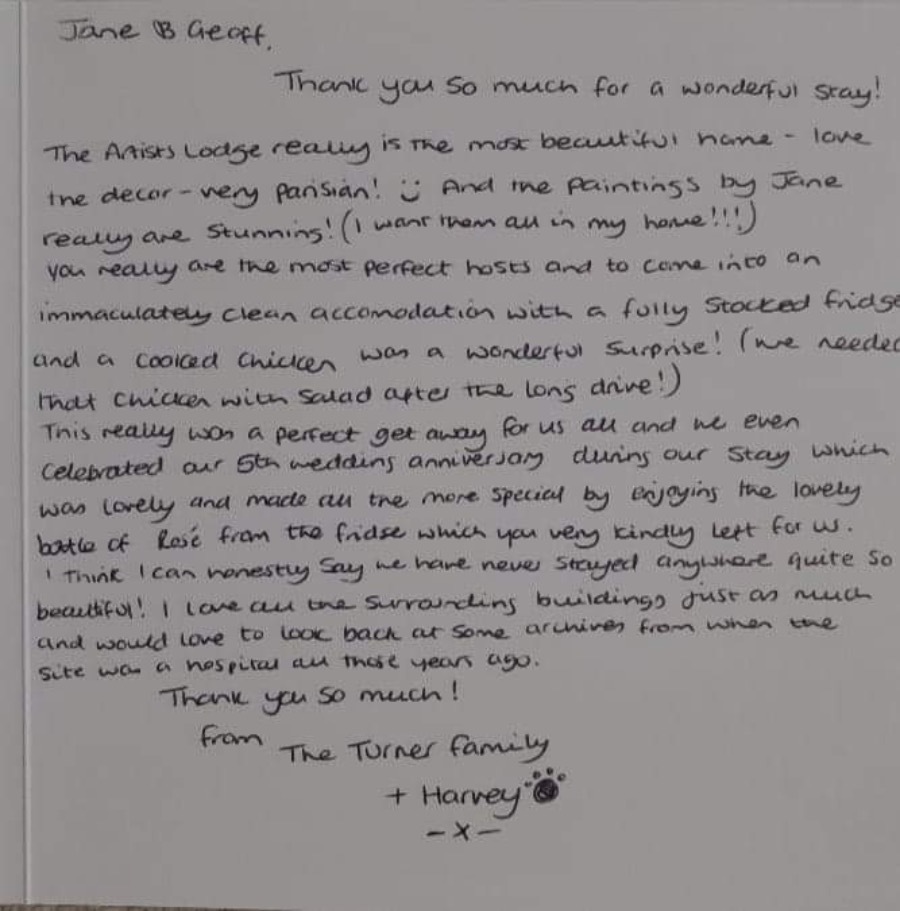 Jane & Geoff,
Thank you so much for a wonderful stay!
The Artists Lodge really is the most beautiful home - love
the decor - very parisian! :) And the paintings by Jane
really are stunning! (I want them all in my home!!!)
you really are the most perfect hosts and to come into an
immaculately clean accomodation with a fully stocked fridge
and a cooked chicken was a wonderful surprise! (we needed
that chicken with salad after the long drive!)
This really was a perfect get away for us all and we even
celebrated our 5th wedding anniversary during our stay which
was lovely and made all the more special by enjoying the lovely
bottle of Rosé from the fridge which you very kindly left for us.
I think I can honestly say we have never stayed anywhere quite so
beautiful! I love all the surrounding buildings just as much
and would love to look back at some archives from when the
site was a hospital all those years ago.
Thank you so much!
from
The Turner family
+ Harvey
-x-